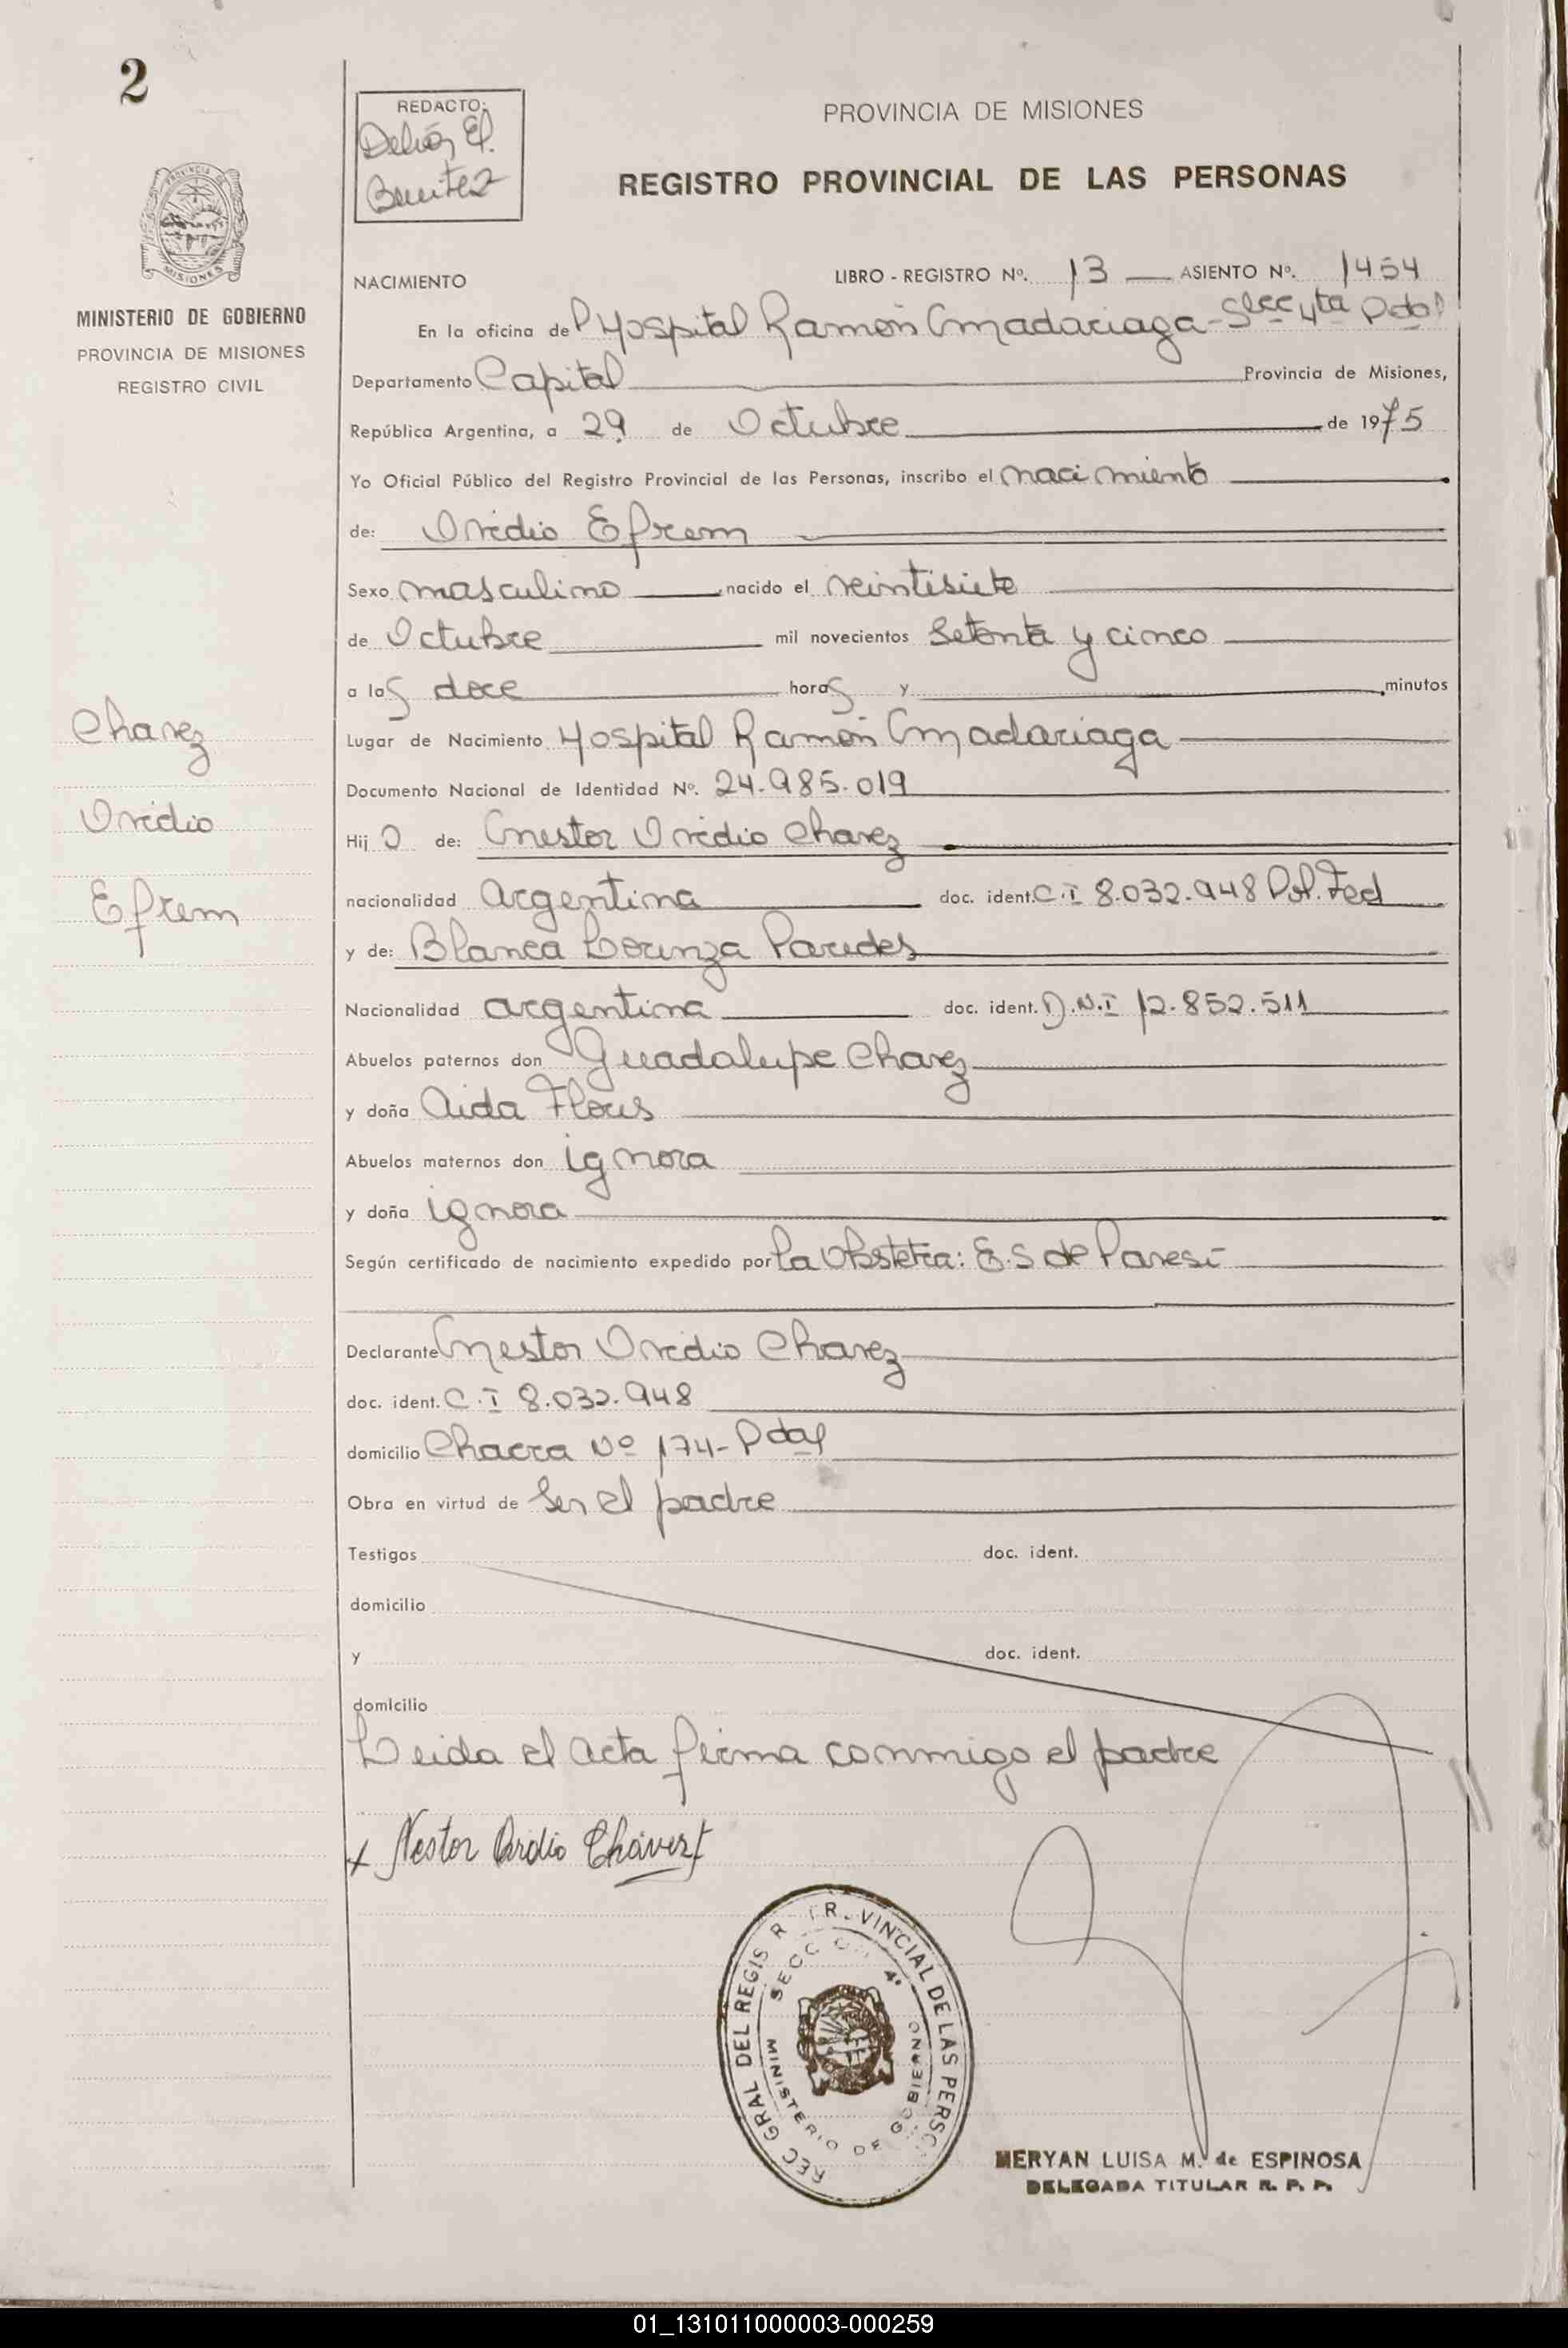 2
REDACTO:
Benitez
PROVINCIA DE MISIONES
REGISTRO PROVINCIAL DE LAS PERSONAS
MISIONES
MINISTERIO DE GOBIERNO
PROVINCIA DE MISIONES
REGISTRO CIVIL
NACIMIENTO LIBRO - REGISTRO Nº. 13 — ASIENTO Nº. 1454
En la oficina del Hospital Ramón Madariaga - Secc 4ta Pdas
Departamento Capital Provincia de Misiones,
República Argentina, a 29 de Octubre de 1975
Yo Oficial Público del Registro Provincial de las Personas, inscribo el nacimiento
de: Ovidio Efrem
Sexo masculino nacido el veintisiete
de Octubre mil novecientos setenta y cinco
a las doce horas y minutos
Chavez
Lugar de Nacimiento Hospital Ramón Madariaga
Documento Nacional de Identidad Nº. 24.985.019
Ovidio
Hijo de: Nestor Ovidio Chavez
Efrem
nacionalidad argentina doc. ident. C.I 8.032.948 Pol. Fed
y de: Blanca Lorenza Paredes
Nacionalidad argentina doc. ident. D.N.I 12.852.511
Abuelos paternos don Guadalupe Chavez
y doña Aida Flores
Abuelos maternos don ignora
y doña ignora
Según certificado de nacimiento expedido por la Obstetra: E.S de
Declarante Nestor Ovidio Chavez
doc. ident. C.I 8.032.948
domicilio Chacra Nº 174- Pdas
Obra en virtud de ser el padre
Testigos doc. ident.
domicilio
y doc. ident.
domicilio
Leida el acta firma conmigo el padre
x Nestor Ovidio Chávez
REC GRAL DEL REGIS R PR VINCIAL DE LAS PERSO
SECC 4º
MINISTERIO DE GOBIERNO
MERYAN LUISA M. de ESPINOSA
DELEGADA TITULAR R. P. P.
01_131011000003-000259